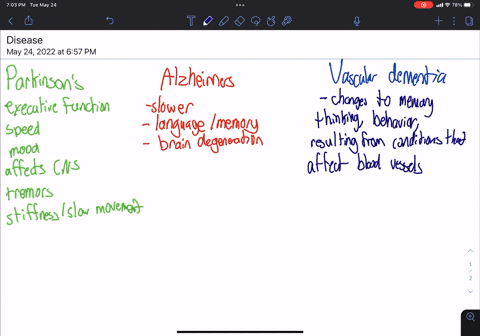 7:03 PM Tue May 24
78%
Disease
May 24, 2022 at 6:57 PM
Parkinson's
executive function
speed
mood
affects CNS
tremors
stiffness/slow movement
Alzheimers
-slower
- language/memory
- brain degeneration
Vascular dementia
- changes to memory
thinking, behavior,
resulting from conditions that
affect blood vessels
1
2